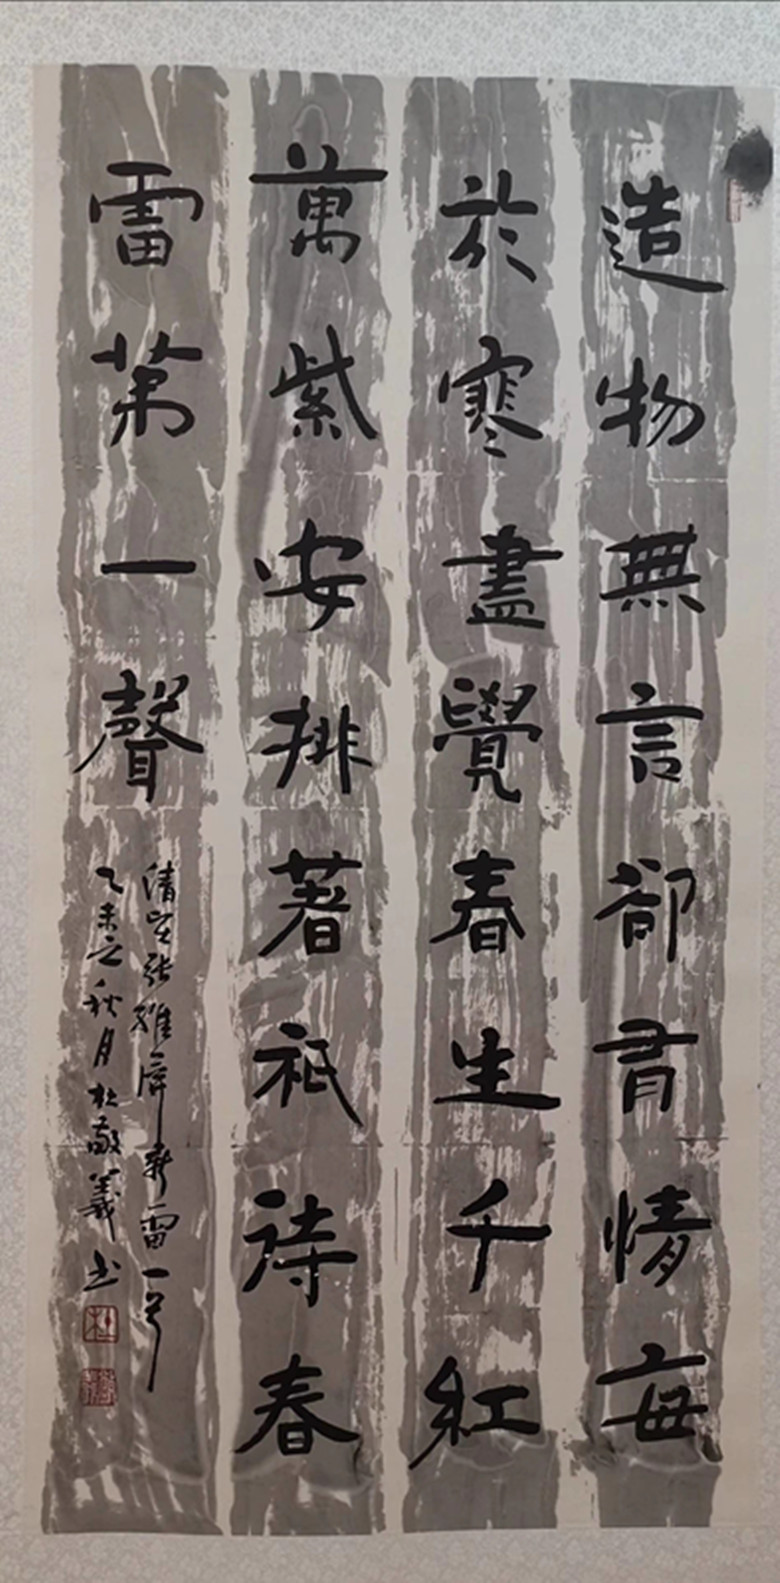 造物無言卻有情每
於寒盡覺春生千紅
萬紫安排著祗待春
雷第一聲
清張維屏新雷一首
乙未之秋月杜敬義书